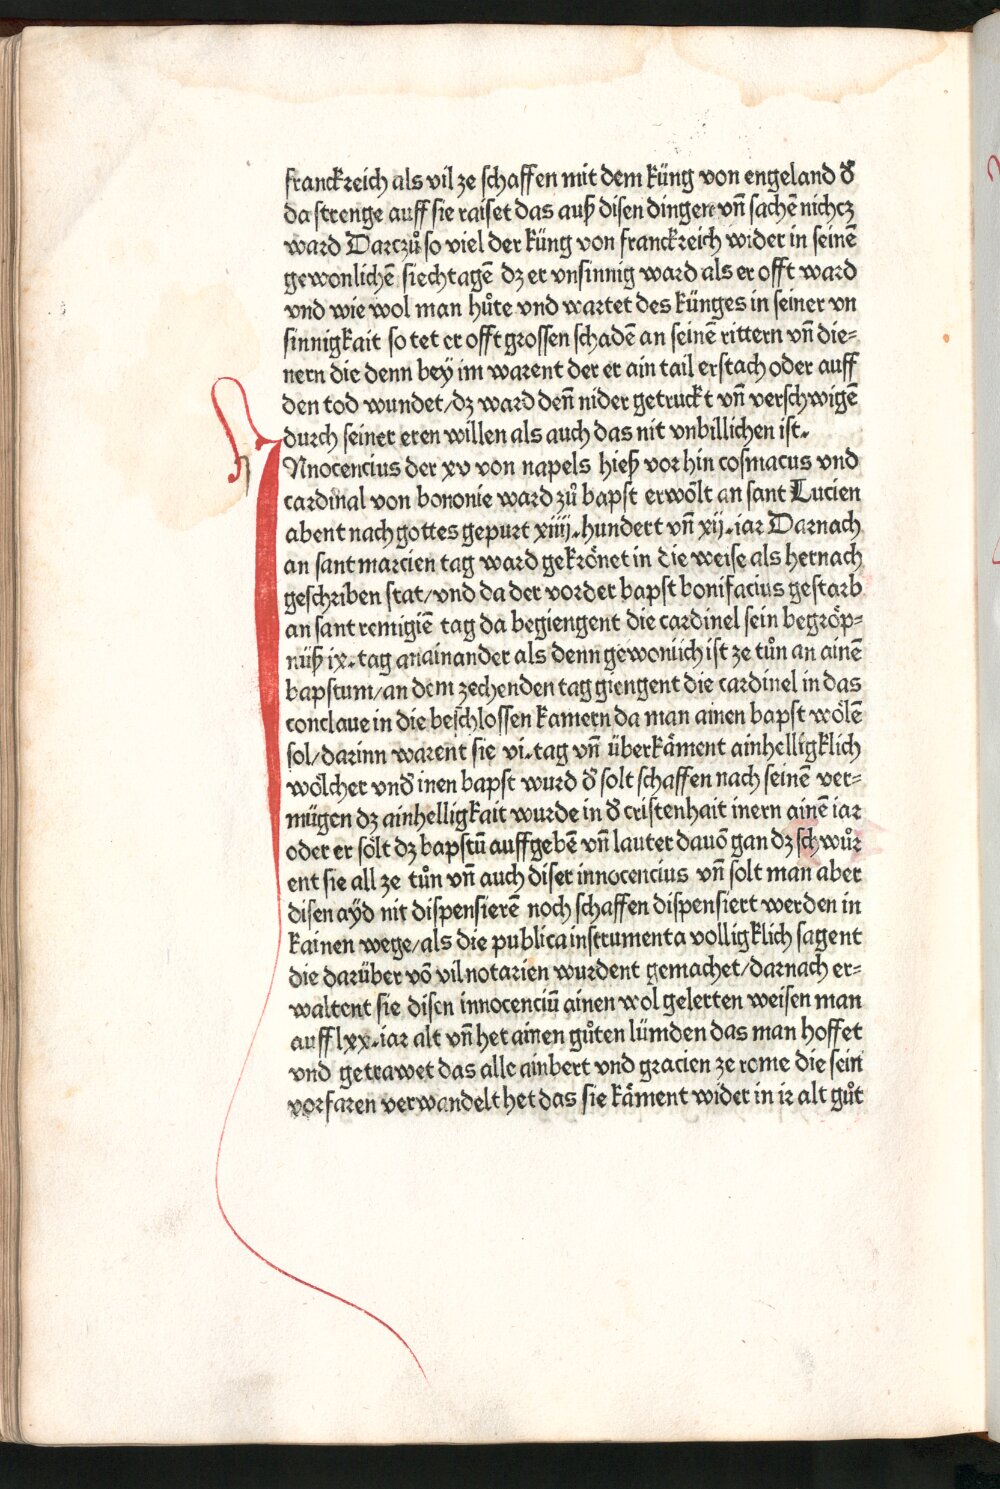 franckreich als vil ze schaffen mit dem küng von engeland đ
da strenge auff sie raiset das auß disen dingen vn̄ sachē nichcz
ward Darczů so viel der küng von franckreich wider in seinē
gewonlichē siechtagē dz er vnsinnig ward als er offt ward
vnd wie wol man hůte vnd wartet des künges in seiner vn
sinnigkait so tet er offt grossen schadē an seinē rittern vn̄ die⸗
nern die denn bey im warent der er ain tail erstach oder auff
den tod wundet/dz ward den̄ nider getruckt vn̄ verschwigē
durch seiner eren willen als auch das nit vnbillichen ist.
INnocencius der xv von napels hieß vor hin cosmacus vnd
cardinal von bononie ward zů bapst erwölt an sant Lucien
abent nach gottes gepurt xiiij.hundert vn̄ xij.iar Darnach
an sant marcien tag ward gekrönet in die weise als hernach
geschriben stat/vnd da der vorder bapst bonifacius gestarb
an sant remigiē tag da begiengent die cardinel sein begröp⸗
nüß ix.tag anainander als denn gewonlich ist ze tůn an ainē
bapstum/an dem zechenden tag giengent die cardinel in das
conclaue in die beschlossen kamern da man ainen bapst wölē
sol/darinn warent sie vi.tag vn̄ überkäment ainhelligklich
wölcher vnđ inen bapst wurd đ solt schaffen nach seinē ver⸗
mügen dz ainhelligkait wurde in đ cristenhait inern ainē iar
oder er sölt dz bapstū auffgebē vn̄ lauter dauō gan dz schwůr
ent sie all ze tůn vn̄ auch diser innocencius vn̄ solt man aber
disen aÿd nit dispensierē noch schaffen dispensiert werden in
kainen wege/als die publica instrumenta volligklich sagent
die darüber vō vil notarien wurdent gemachet/darnach er⸗
waltent sie disen innocenciū ainen wol gelerten weisen man
auff lxx.iar alt vn̄ het ainen gůten lümden das man hoffet
vnd getrawet das alle ainbert vnd gracien ze rome die sein
vorfaren verwandelt het das sie käment wider in ir alt gůt